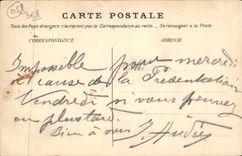 CARTE POSTALE
Tous les Pays étrangers n'acceptent pas la Correspondance au recto. - Se renseigner à la Poste.
CORRESPONDANCE
ADRESSE
Impossible pour mercredi
à cause de la Présentation
Vendredi si vous pouvez
ou plus tard.
Bien à vous